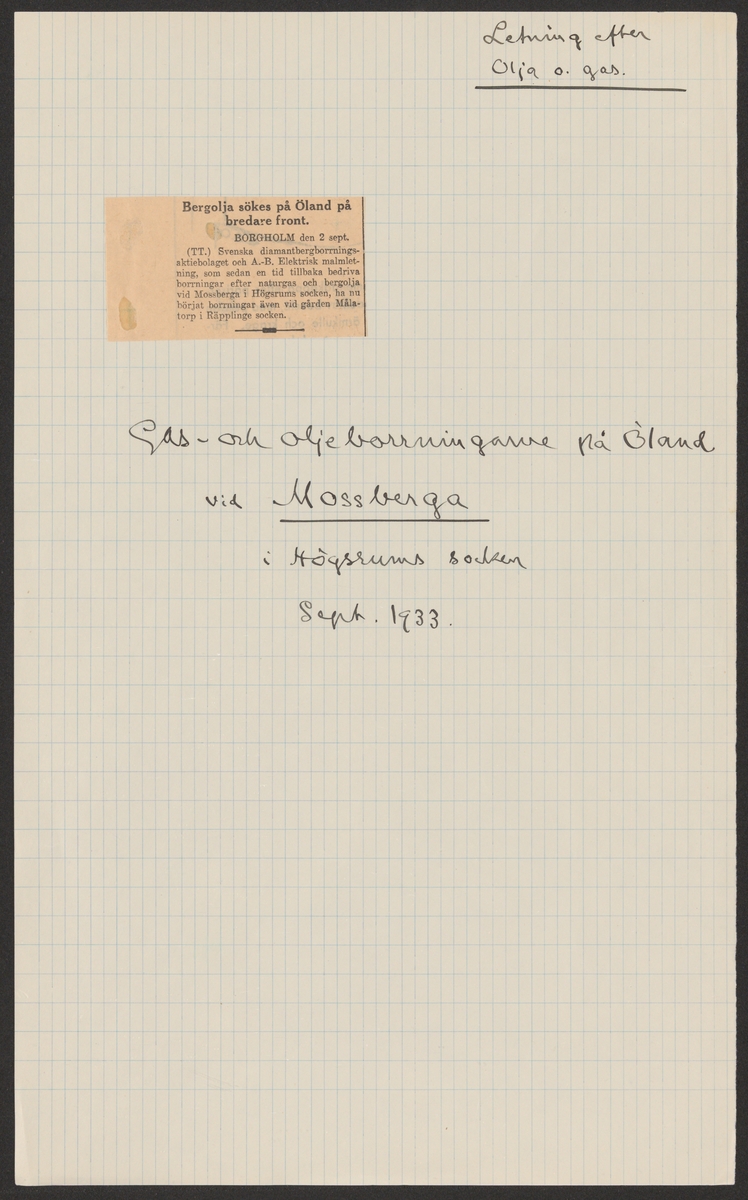 Letning efter
Olja o. gas.
Bergolja sökes på Öland på
bredare front.
BORGHOLM den 2 sept.
(TT.) Svenska diamantbergborrnings-
aktiebolaget och A.-B. Elektrisk malmlet-
ning, som sedan en tid tillbaka bedriva
borrningar efter naturgas och bergolja
vid Mossberga i Högsrums socken, ha nu
börjat borrningar även vid gården Måla-
torp i Räpplinge socken.
Gas- och oljeborrningarne på Öland
vid Mossberga
i Högsrums socken
Sept. 1933.